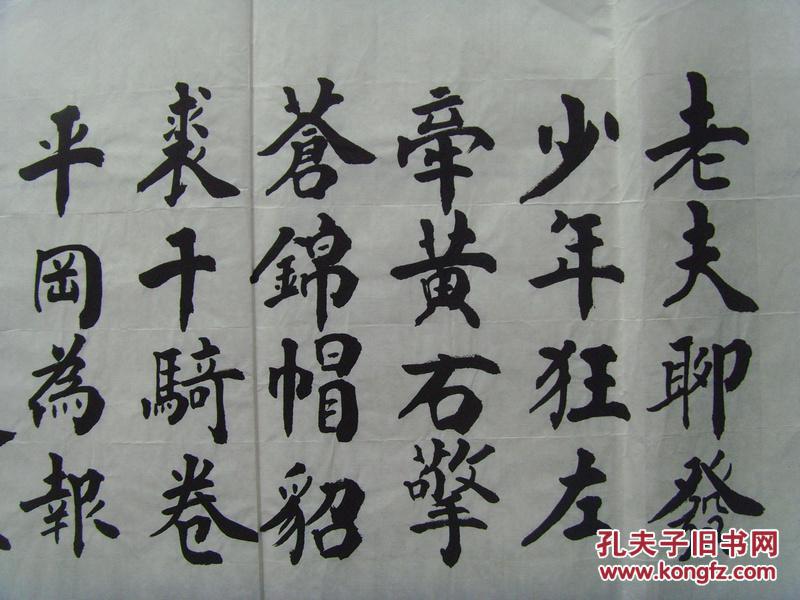 老夫聊發
少年狂左
牽黃右擎
蒼錦帽貂
裘千騎卷
平岡為報
孔夫子旧书网
www.kongfz.com